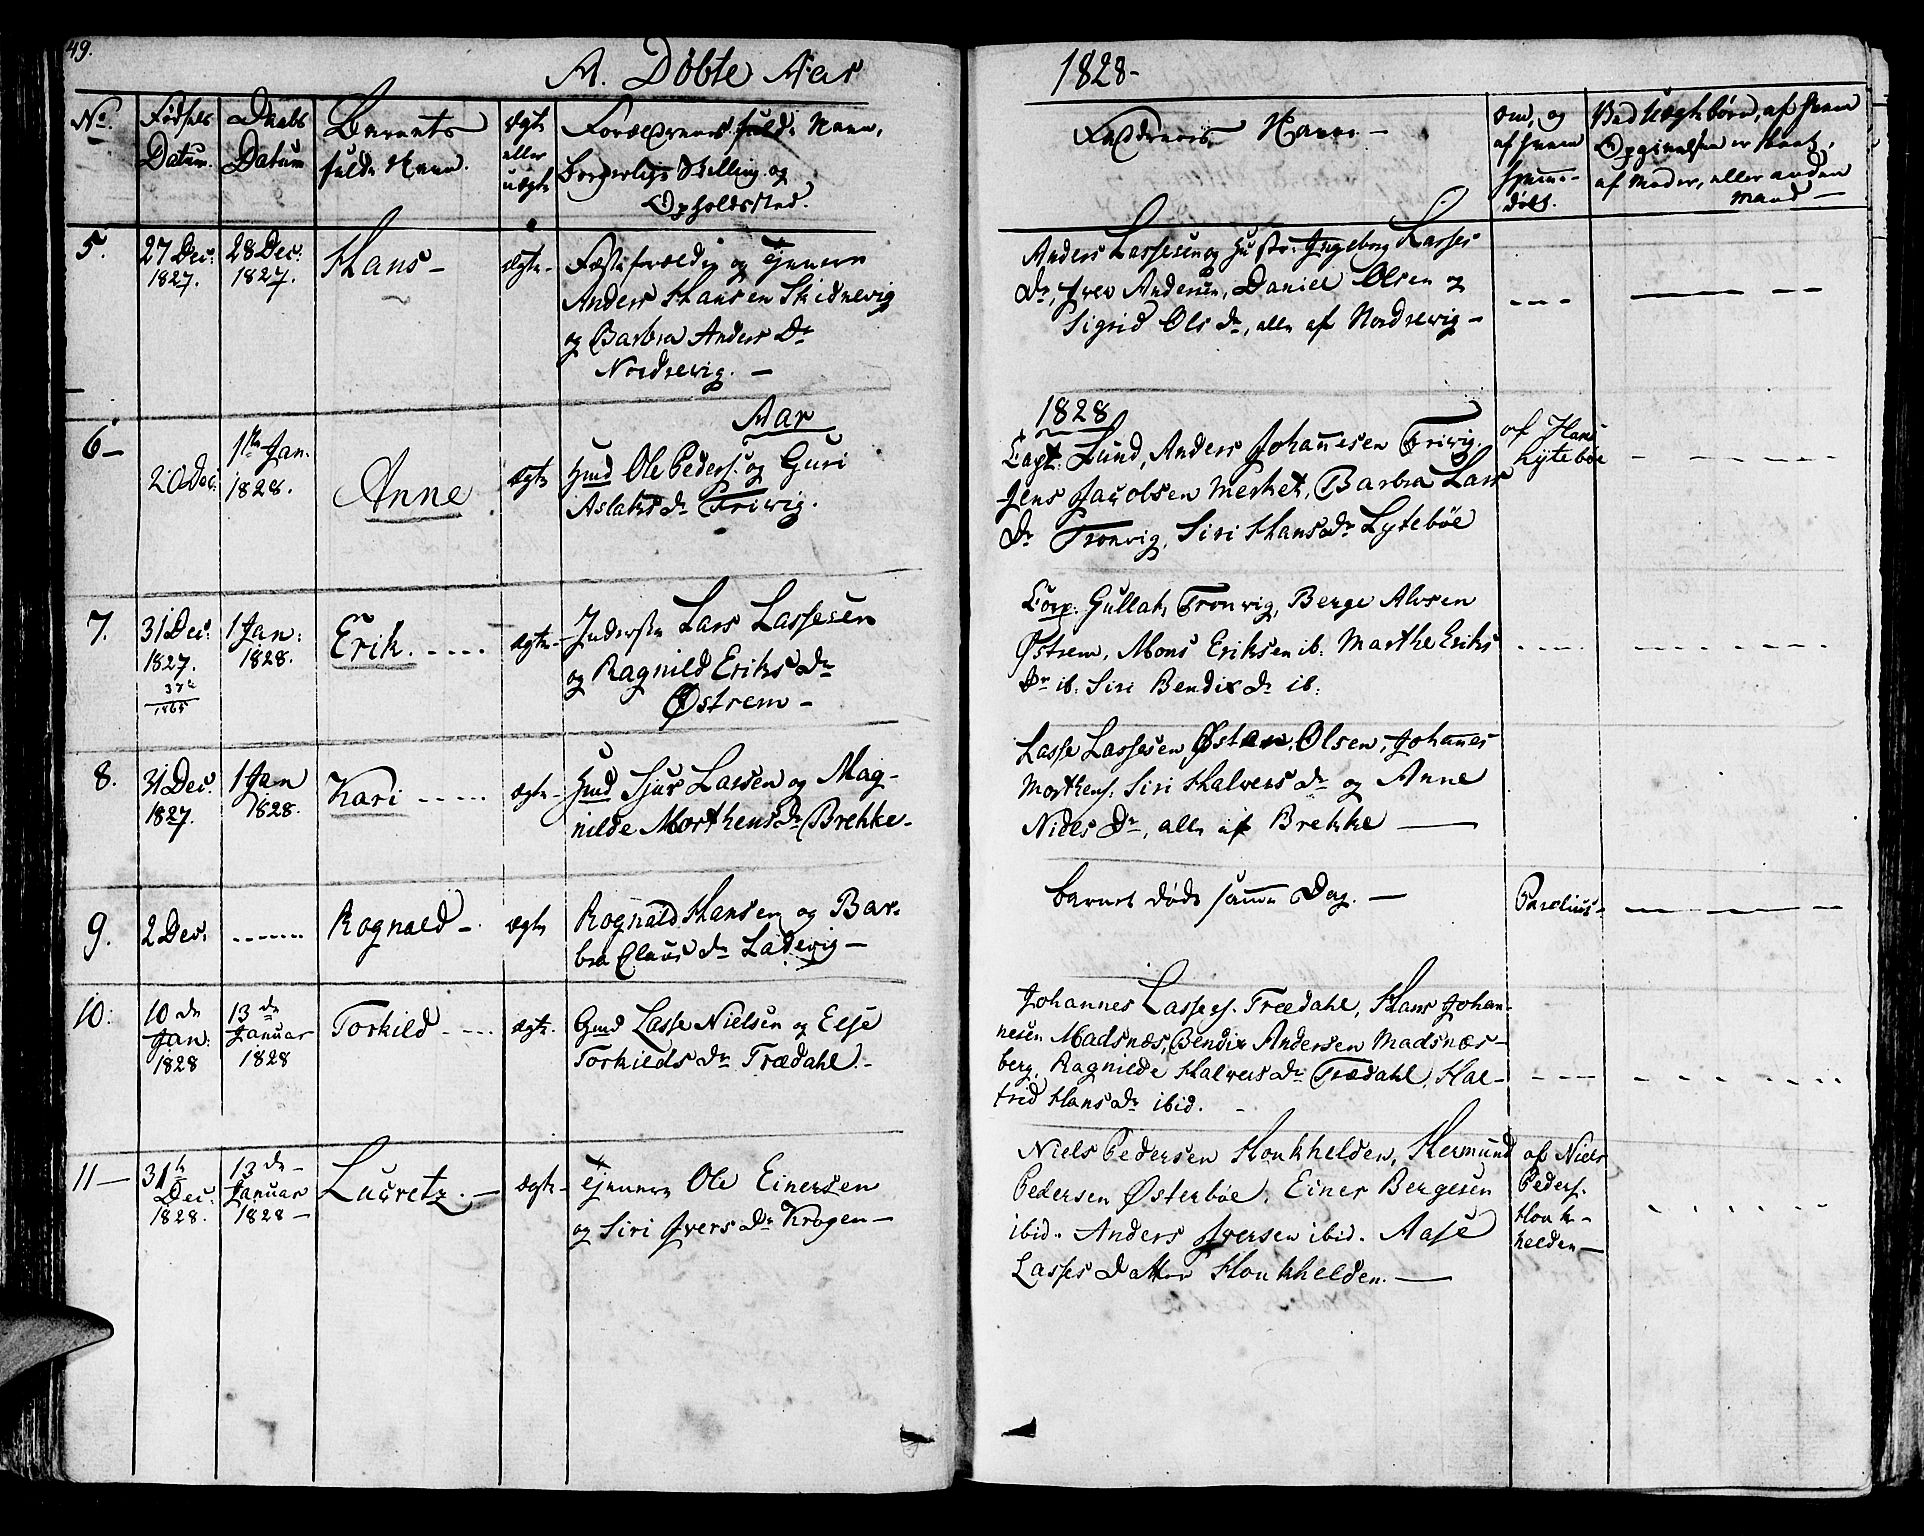 49.
A. Døbte Aar
1828-
No.
Fødsels Datum
Daabs Datum
Barnets fulde Navn.
ægte eller uægte
Forældrenes fulde Navn,
borgerlige Stilling og
Opholdssted.
Faddernes Navne -
om, og
af hvem
hjemme-
døbt.
Ved Uægtebørn, af hvem
Opgivelsen er skeet,
af Moder, eller anden
Mand -
5.
27 Dec: 1827.
28 Dec: 1827.
Hans -
ægte -
og Tjenere
Anders Hansen Skidnevig
og Barbra Anders Dr
Nordrevig. -
Anders Lassesen og Hustr: Ingeborg Lasses
Dr, Iver Andersen, Daniel Olsen og
Sigrid Ols Dr, alle af Nordrevig -
Aar
1828
6 -
20 Dec.
1ste Jan. 1828.
Anne
ægte
Gmd Ole Peders. og Guri
Aslaks Dr Friwig.
Capt: Lund, Anders Johannesen Friwig.
Jens Jacobsen Merket, Barbra Lars
Dr Tronvig, Siri Hans Dr Lytebøe
af Hans
Lytebøe
7.
31 Dec: 1827.
1865
1 Jan: 1828.
Erik. - - - -
ægte -
Inderste Lars Lassesen
og Ragnild Eriks Dr
Østrem -
Corp: Gullak Tronvig, Berge Alvsen
Østrem, Mons Eriksen ib: Marthe Eriks
Dr ib: Siri Bendix Dr ib:
8.
31 Dec. 1827.
1 Jan 1828.
Kari - - - - -
ægte -
Gmd Sjur Larsen og Mag-
nilde Morthens Dr Brekke -
Lasse Lassesen Østen Olsen, Johannes
Morthens. Siri Halvers Dr og Anne
Niels Dr, alle af Brekke -
9.
2 Dec.
- - - - - -
Rognald -
ægte
Rognald Hansen og Bar-
bra Claus Dr Ladevig -
barnet døde samme Dag. -
10:
10 de Jan: 1828
13 de Januar 1828
Torkild - - - -
ægte.
Gmd Lasse Nielsen og Else
Torkilds Dr Trædahl. -
Johannes Lasses. Trædahl, Hans Johan-
nesen Madsnæs, Bendix Andersen Madsnæs-
berg, Ragnilde Halvers Dr Trædahl, Hal-
trid Hans Dr ibid. -
11 -
31te Dec: 1828.
13 de - Januar 1828 -
Lucretz. -
ægte -
Tjenere Ole Einersen
og Siri Ivers Dr Krogen -
Niels Pedersen Houkhelden, Hermund
Pedersen Østerbøe, Einer Bergesen
ibid. Anders Iversen ibid. Aase
Lasses Datter Houkhelden. -
af Niels
Peders.
Houk-
helden -